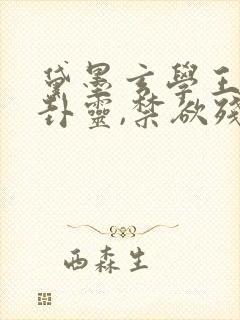 黛墨玄學王
卦靈,禁欲殘
西森生